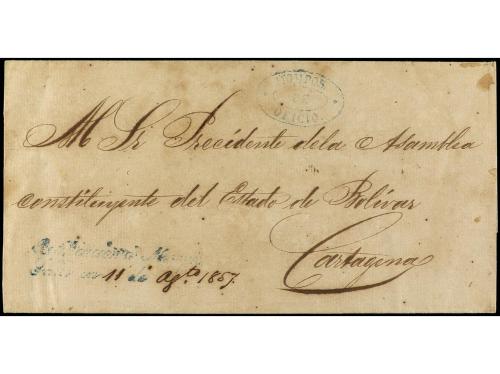 DE
OFICIO.
Al Sr Precidente dela Asamblea
constituyente del Estado de Bolívar
Cartagena
11 de Agto 1857.